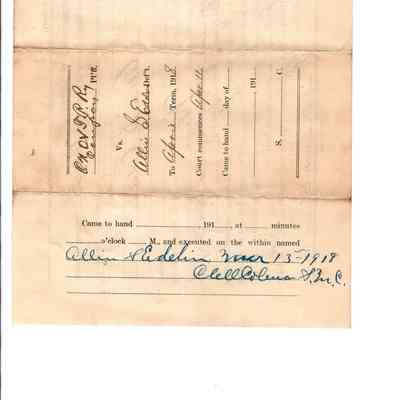 C N O & T P Ry
Company Pl'ff.
Vs.
Allin S Edelen Def't.
To April Term, 1918
Court commences Apr 11
Came to hand day of
191
S. C.
Came to hand 191 , at minutes
o'clock M., and executed on the within named
Allin S Edelin Mar 13-1918
Clell Coleman S.M.C.